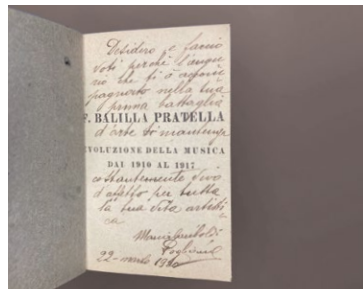 Desidero e faccio
voti perché l'augu
rio che ti à accom
pagnato nella tua
prima battaglia
F. BALILLA PRATELLA
d'arte si mantenga
EVOLUZIONE DELLA MUSICA
DAL 1910 AL 1917
costantemente vivo
d'affetto per tutta
la tua vita artisti
ca
22-marzo